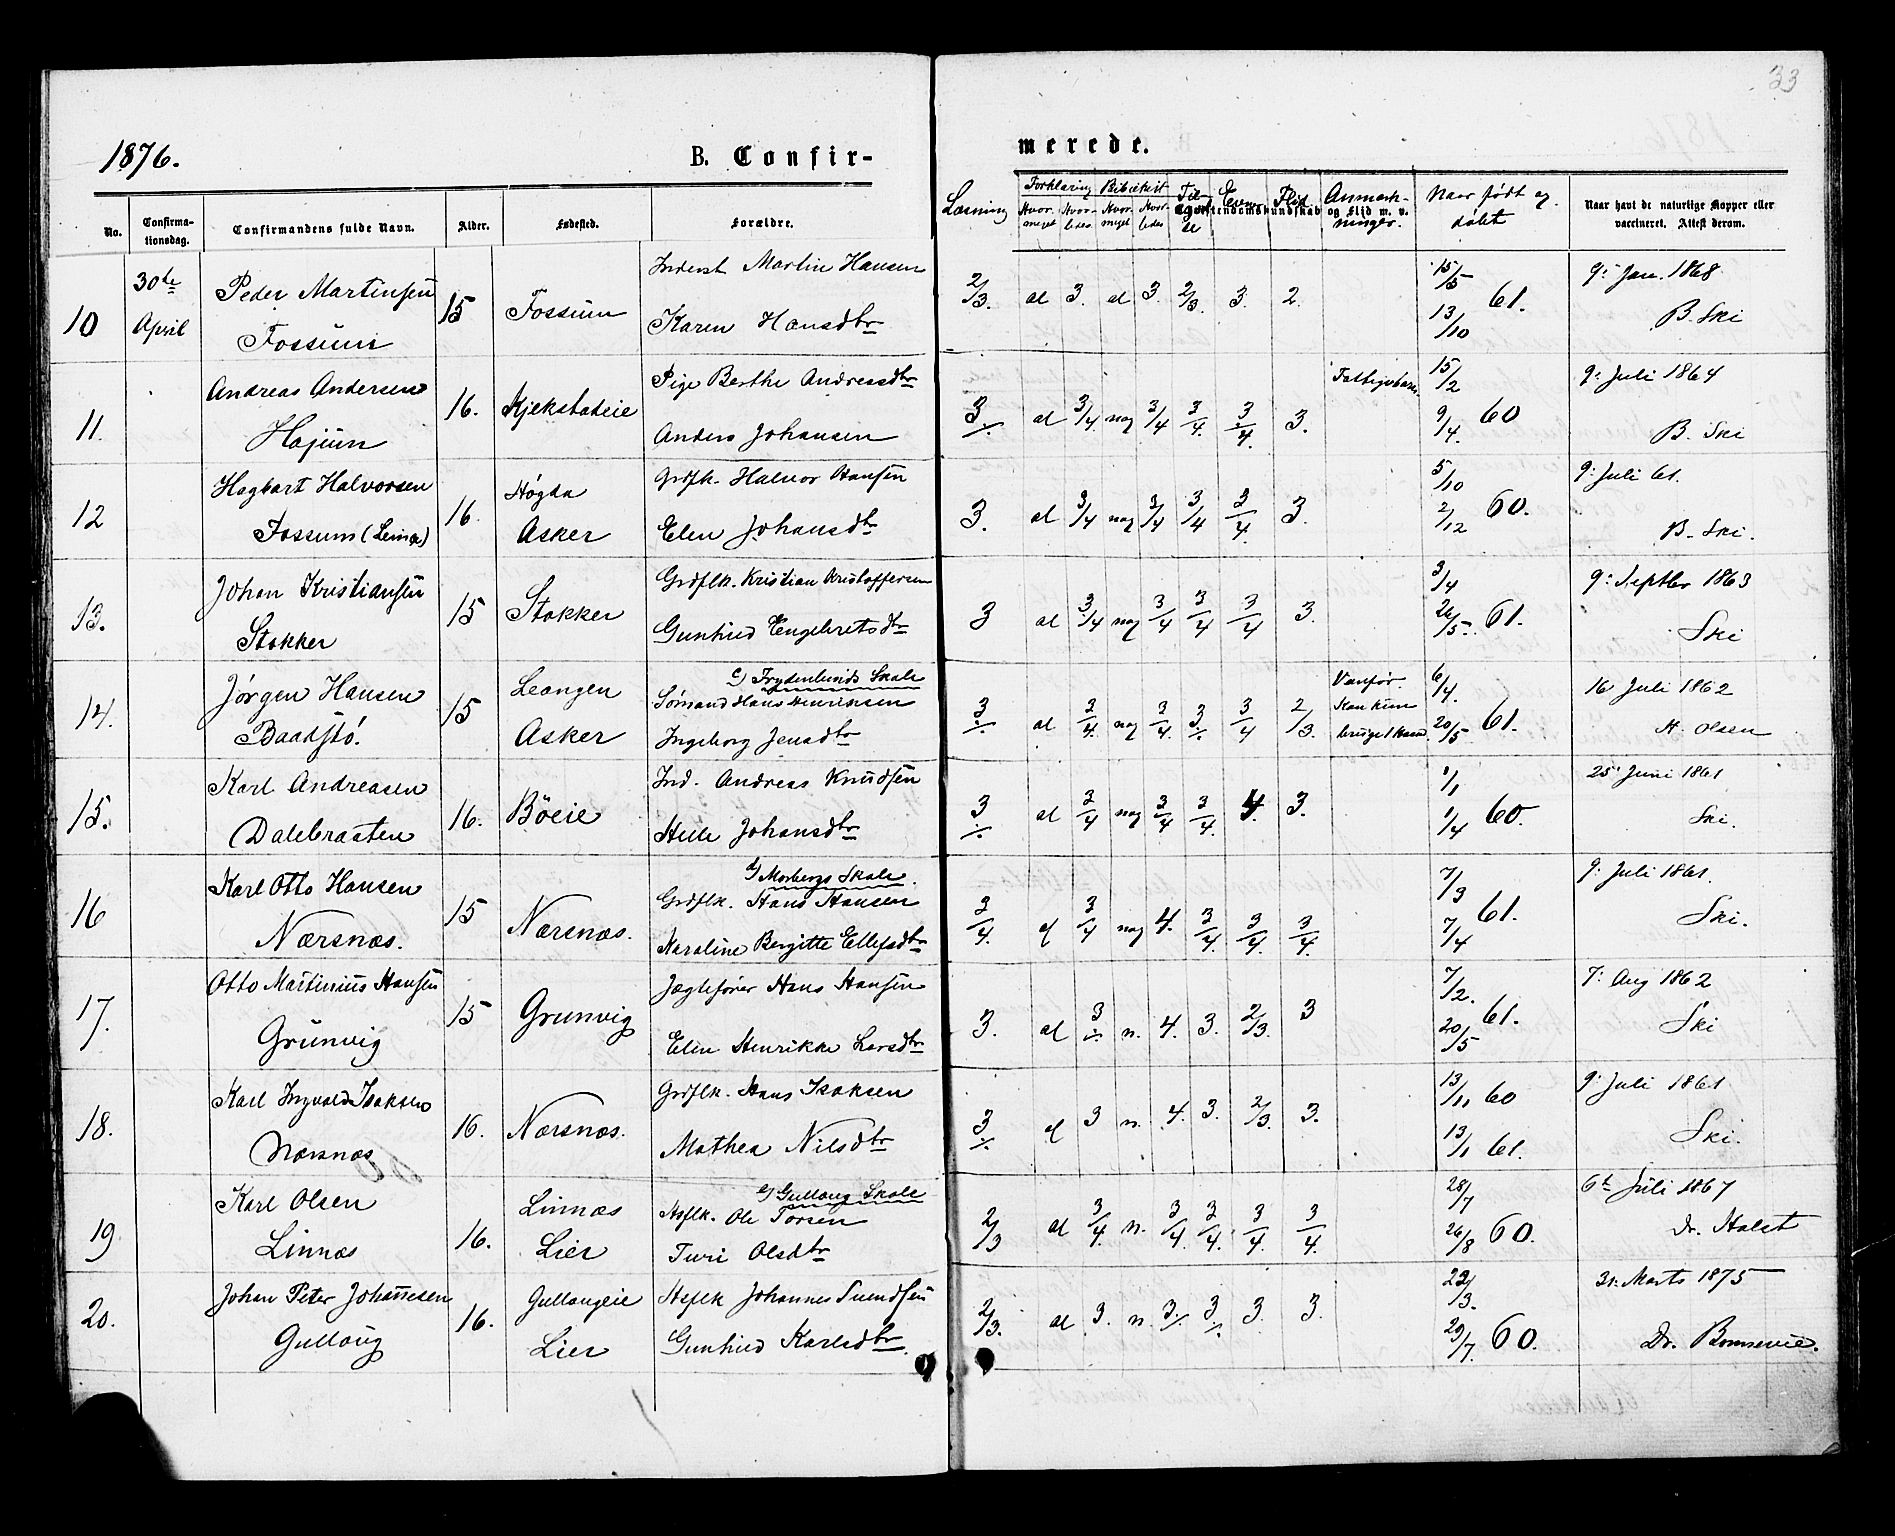 33
1876.
B. Confir-
merede.
No.
Confirma-
tionsdag.
Confirmandens fulde Navn.
Alder.
Fødested.
Forældre.
Læsning
Forklaring
Hvor-
meget
Hvor-
ledes
Hvor-
meget
Hvor-
ledes
Evner
Flid
Anmærk-
ninger.
og Flid m. v.
Naar født og
døbt
Naar havt de naturlige Kopper eller
vaccineret. Attest derom.
10
30te
April
Peder Martinsen
Fossum
15
Fossum
Inderst Martin Hansen
Karen Hansdtr
2/3. al 3. al 3. 2/3. 3. 2.
15/5
13/10
61.
9: Jan. 1868
B. Ski
11.
Andreas Andersen
Hajum
16.
Kjekstadeie
Pige Berthe Andreasdtr
Anders Johansen
3/÷ al 3/4 nog 3/4 3/4. 3/4. 3.
15/2
9/4.
60
9: Juli 1864
B. Ski
12
Hagbart Halvorsen
Fossum
16.
Høgda
Asker
Grdfk. Halvor Hansen
Elen Johansdtr
3. al 3/4 nog 3/4 3/4 3/4. 3.
5/10
2/12
60.
9: Juli 61.
B. Ski.
13.
Johan Kristiansen
Stokker
15
Stokker
Grdflk. Kristian Kristoffersen
Gunhild Engebretsdtr
3 al 3/4 nog 3/4 3/4 3/4 3.
3/4
26/5.
61.
9: Septbr 1863
Ski
14.
Jørgen Hansen
Baadstø.
15
Leangen
Asker
c) Frydenlunds Skole
Sømand Hans Henriksen
Ingeborg Jensdtr
3/÷ al 3/4. nog 3/4. 3/÷. 3/4 2/3.
Vanfør.
Kan kun
bruge 1 Haand.
6/4.
20/5
61.
16 Juli 1862
H. Olsen
15.
Karl Andreasen
Dalebraaten
16.
Böeie
Ind. Andreas Knudsen
Helle Johansdtr
3/÷ al 3/4 nog 3/4 3/4. 4. 3.
1/1
1/4
60.
25 Juni 1861
Ski.
16
Karl Otto Hansen
Nærsnæs.
15
Nærsnæs.
d) Morbergs Skole.
Grdflk. Hans Hansen
Karoline Bergitte Ellefsdtr
3/4. 3/4 nog 4. 3/4. 3/4. 3/4.
7/3
7/4
61.
9: Juli 1861.
Ski.
17.
Otto Martinius Hansen
Grunvig
15
Grunvig
Jægtefører Hans Hansen
Elen Henrikke Larsdtr
3. al 3/÷ n. 4. 3. 2/3. 3
7/2.
20/5
61.
7: Aug 1862
Ski
18.
Karl Ingvald Isaksen
Nærsnæs
16.
Nærsnæs.
Grdflk. Hans Isaksen
Mathea Nilsdtr
3/÷ 3 n. 4. 3. 2/3. 3.
13/11 60
13/1 61.
9: Juli 1861
Ski.
19
Karl Olsen
Linnæs
16.
Linnæs
Lier
e) Gullaug Skole
Hsflk. Ole Torsen
Turi Olsdtr
2/3 al 3/4. n. 3/4. 3/4. 3/4. 3/4.
28/7
26/8
60.
6te Juli 1867
Dr. Holst
20.
Johan Peter Johannesen
Gullaug
16.
Gullaugeie
Lier
Hsflk Johannes Svendsen
Gunhild Karlsdtr.
2/3. al 3. n. 3/÷. 3/÷. 3. 3.
60.
31. Marts 1875
Dr. Bonnevie.